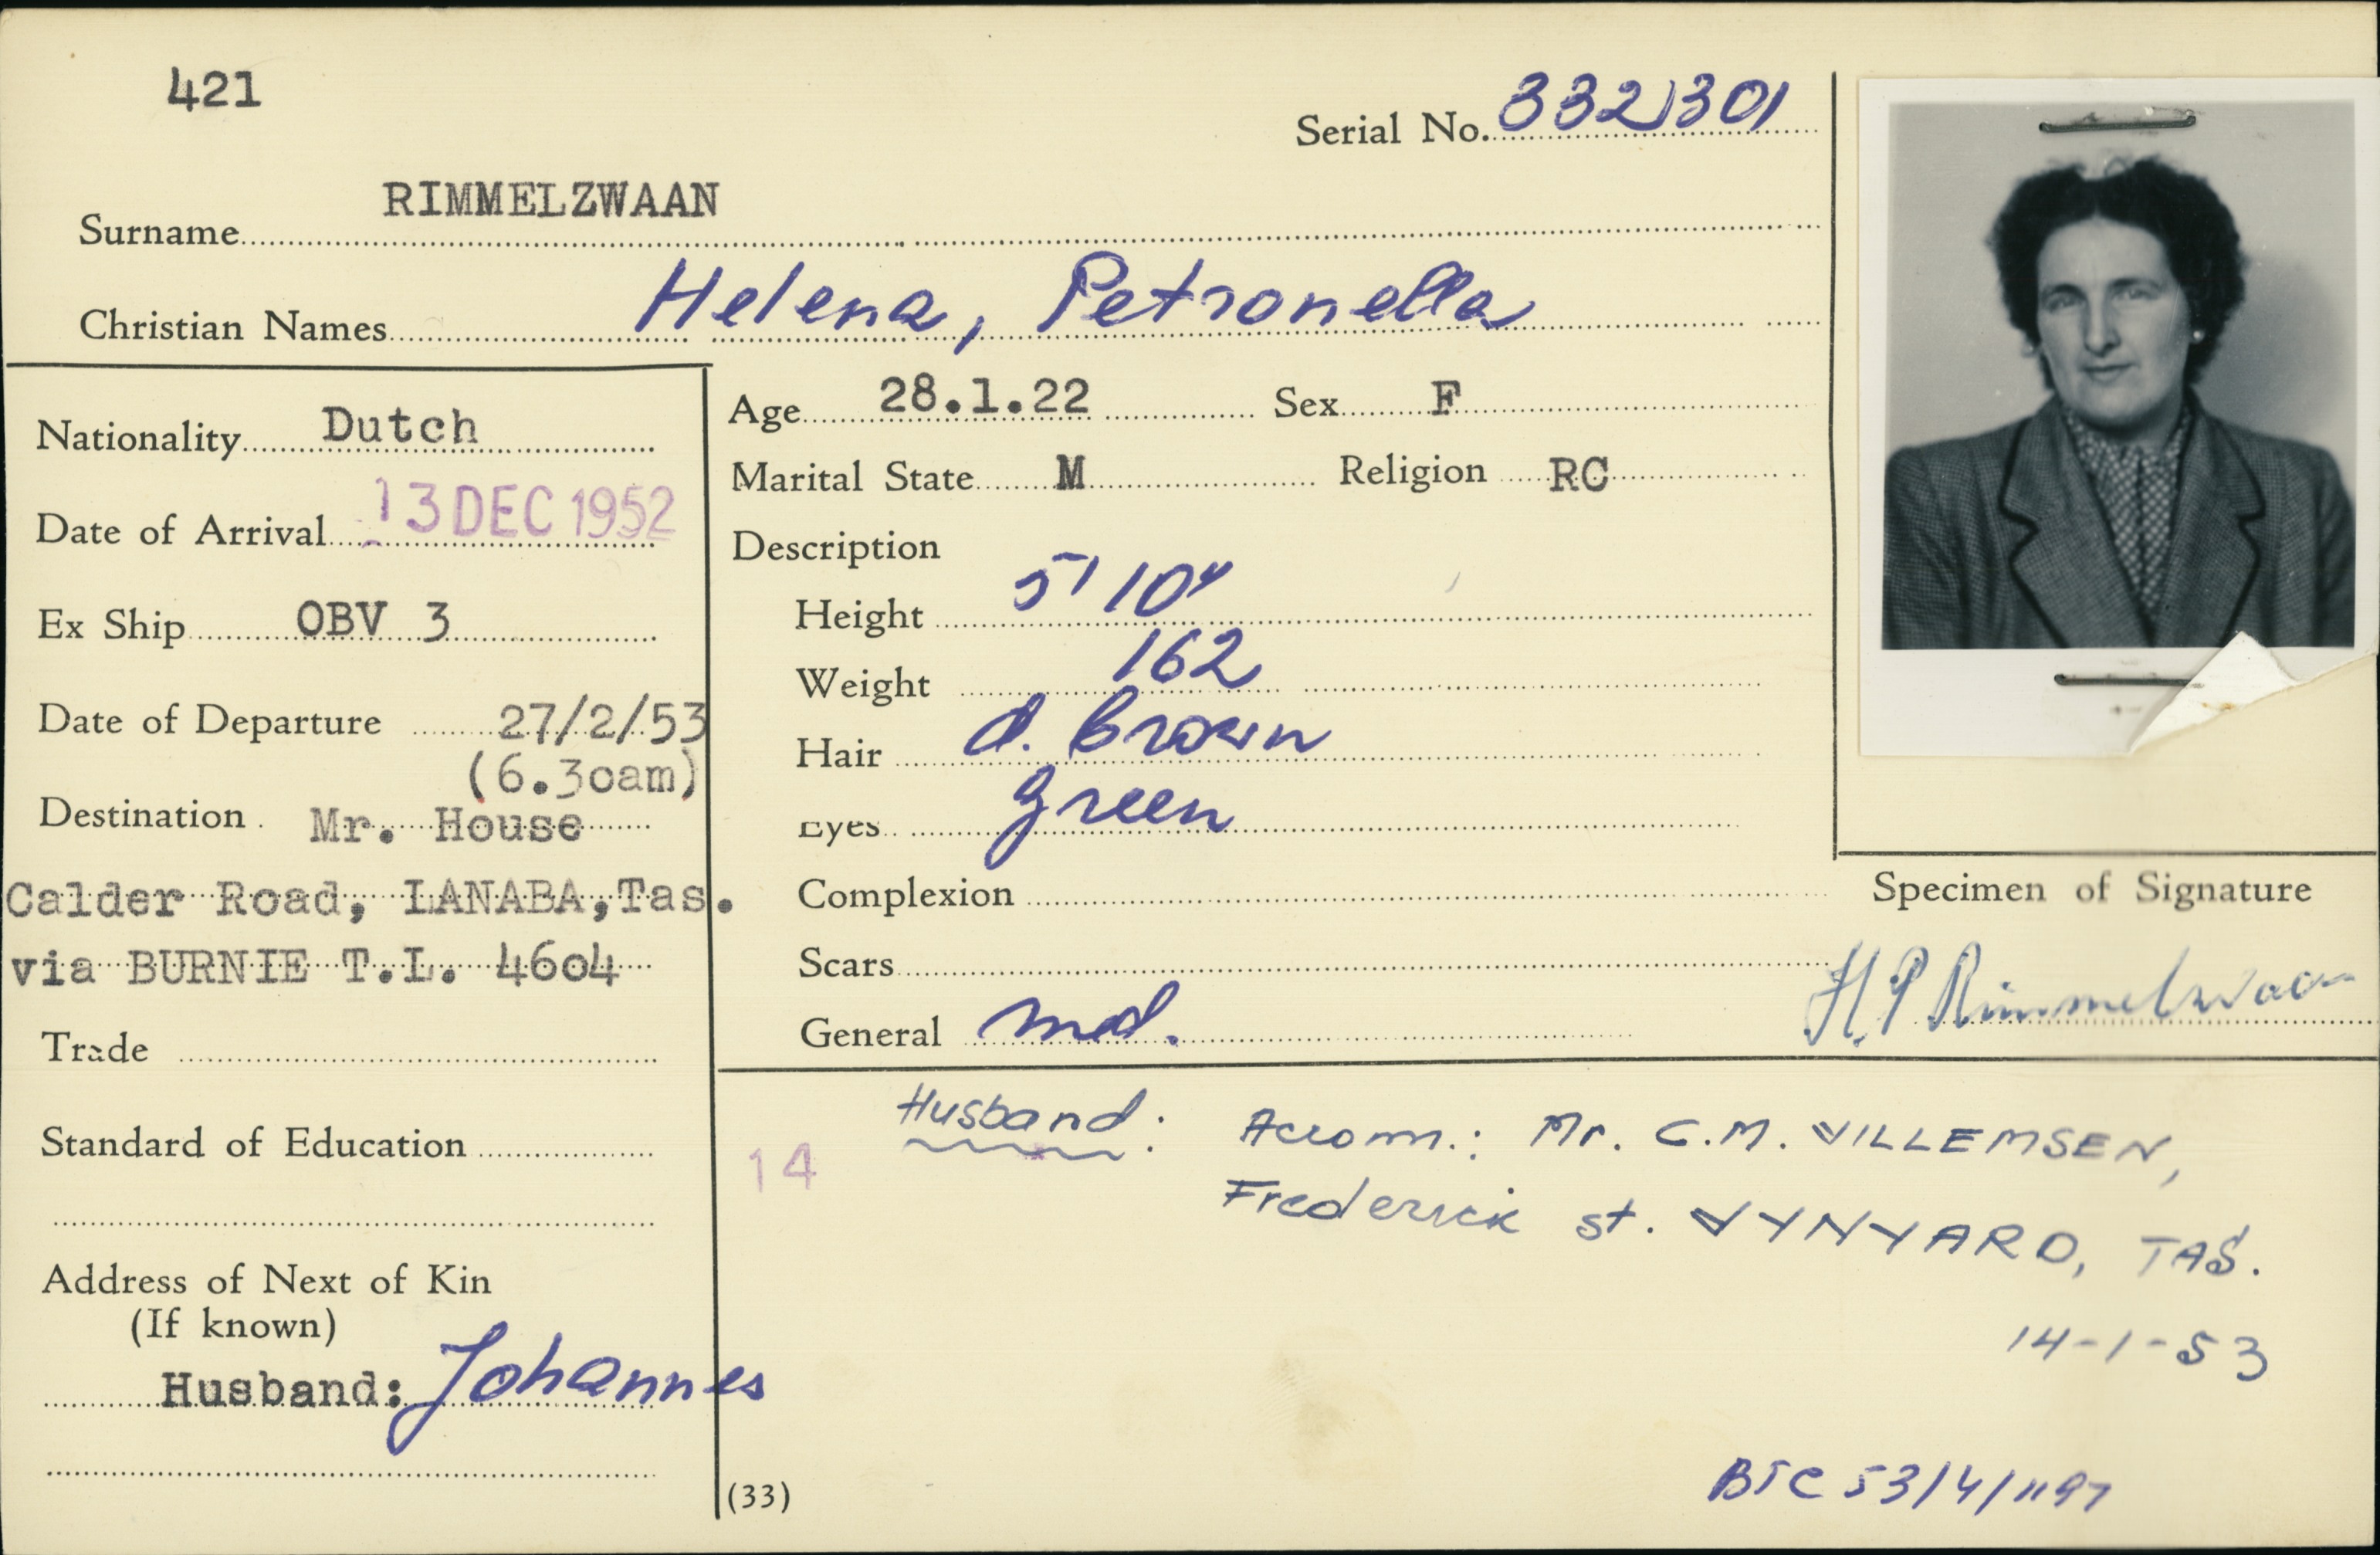 421
Serial No. 332301
Surname RIMMELZWAAN
Christian Names Helena, Petronella
Nationality Dutch
Date of Arrival 13 DEC 1952
Ex Ship OBV 3
Date of Departure 27/2/53
(6.30am)
Destination Mr. House
Calder Road, LANABA, Tas.
via BURNIE T.L. 4604
Trade
Standard of Education
Address of Next of Kin
(If known)
Husband: Johannes
Age 28.1.22 Sex F
Marital State M Religion RC
Description
Height 5' 10"
Weight 162
Hair d. brown
Eyes green
Complexion
Scars
General med.
Specimen of Signature
H P Rimmelzwaan
14
Husband: Accom.: Mr. C.M. WILLEMSEN,
Frederick st. WYNYARD, TAS.
14-1-53
53/4/1197
(33)